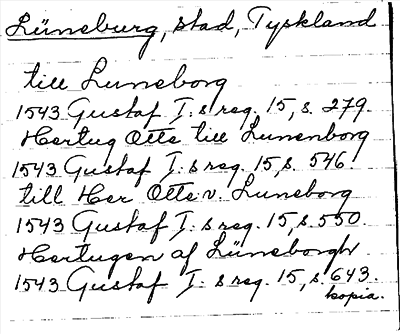 Lüneburg, stad, Tyskland
till Luneborg
1543 Gustaf I:s reg. 15, s. 279.
Hertug Otte till Lunenborg
1543 Gustaf I:s reg. 15, s. 546.
till Her Otte v. Luneborg
1543 Gustaf I:s reg. 15, s. 550.
Hertugen af Lüneborgh
1543 Gustaf I:s reg. 15, s. 643.
kopia.